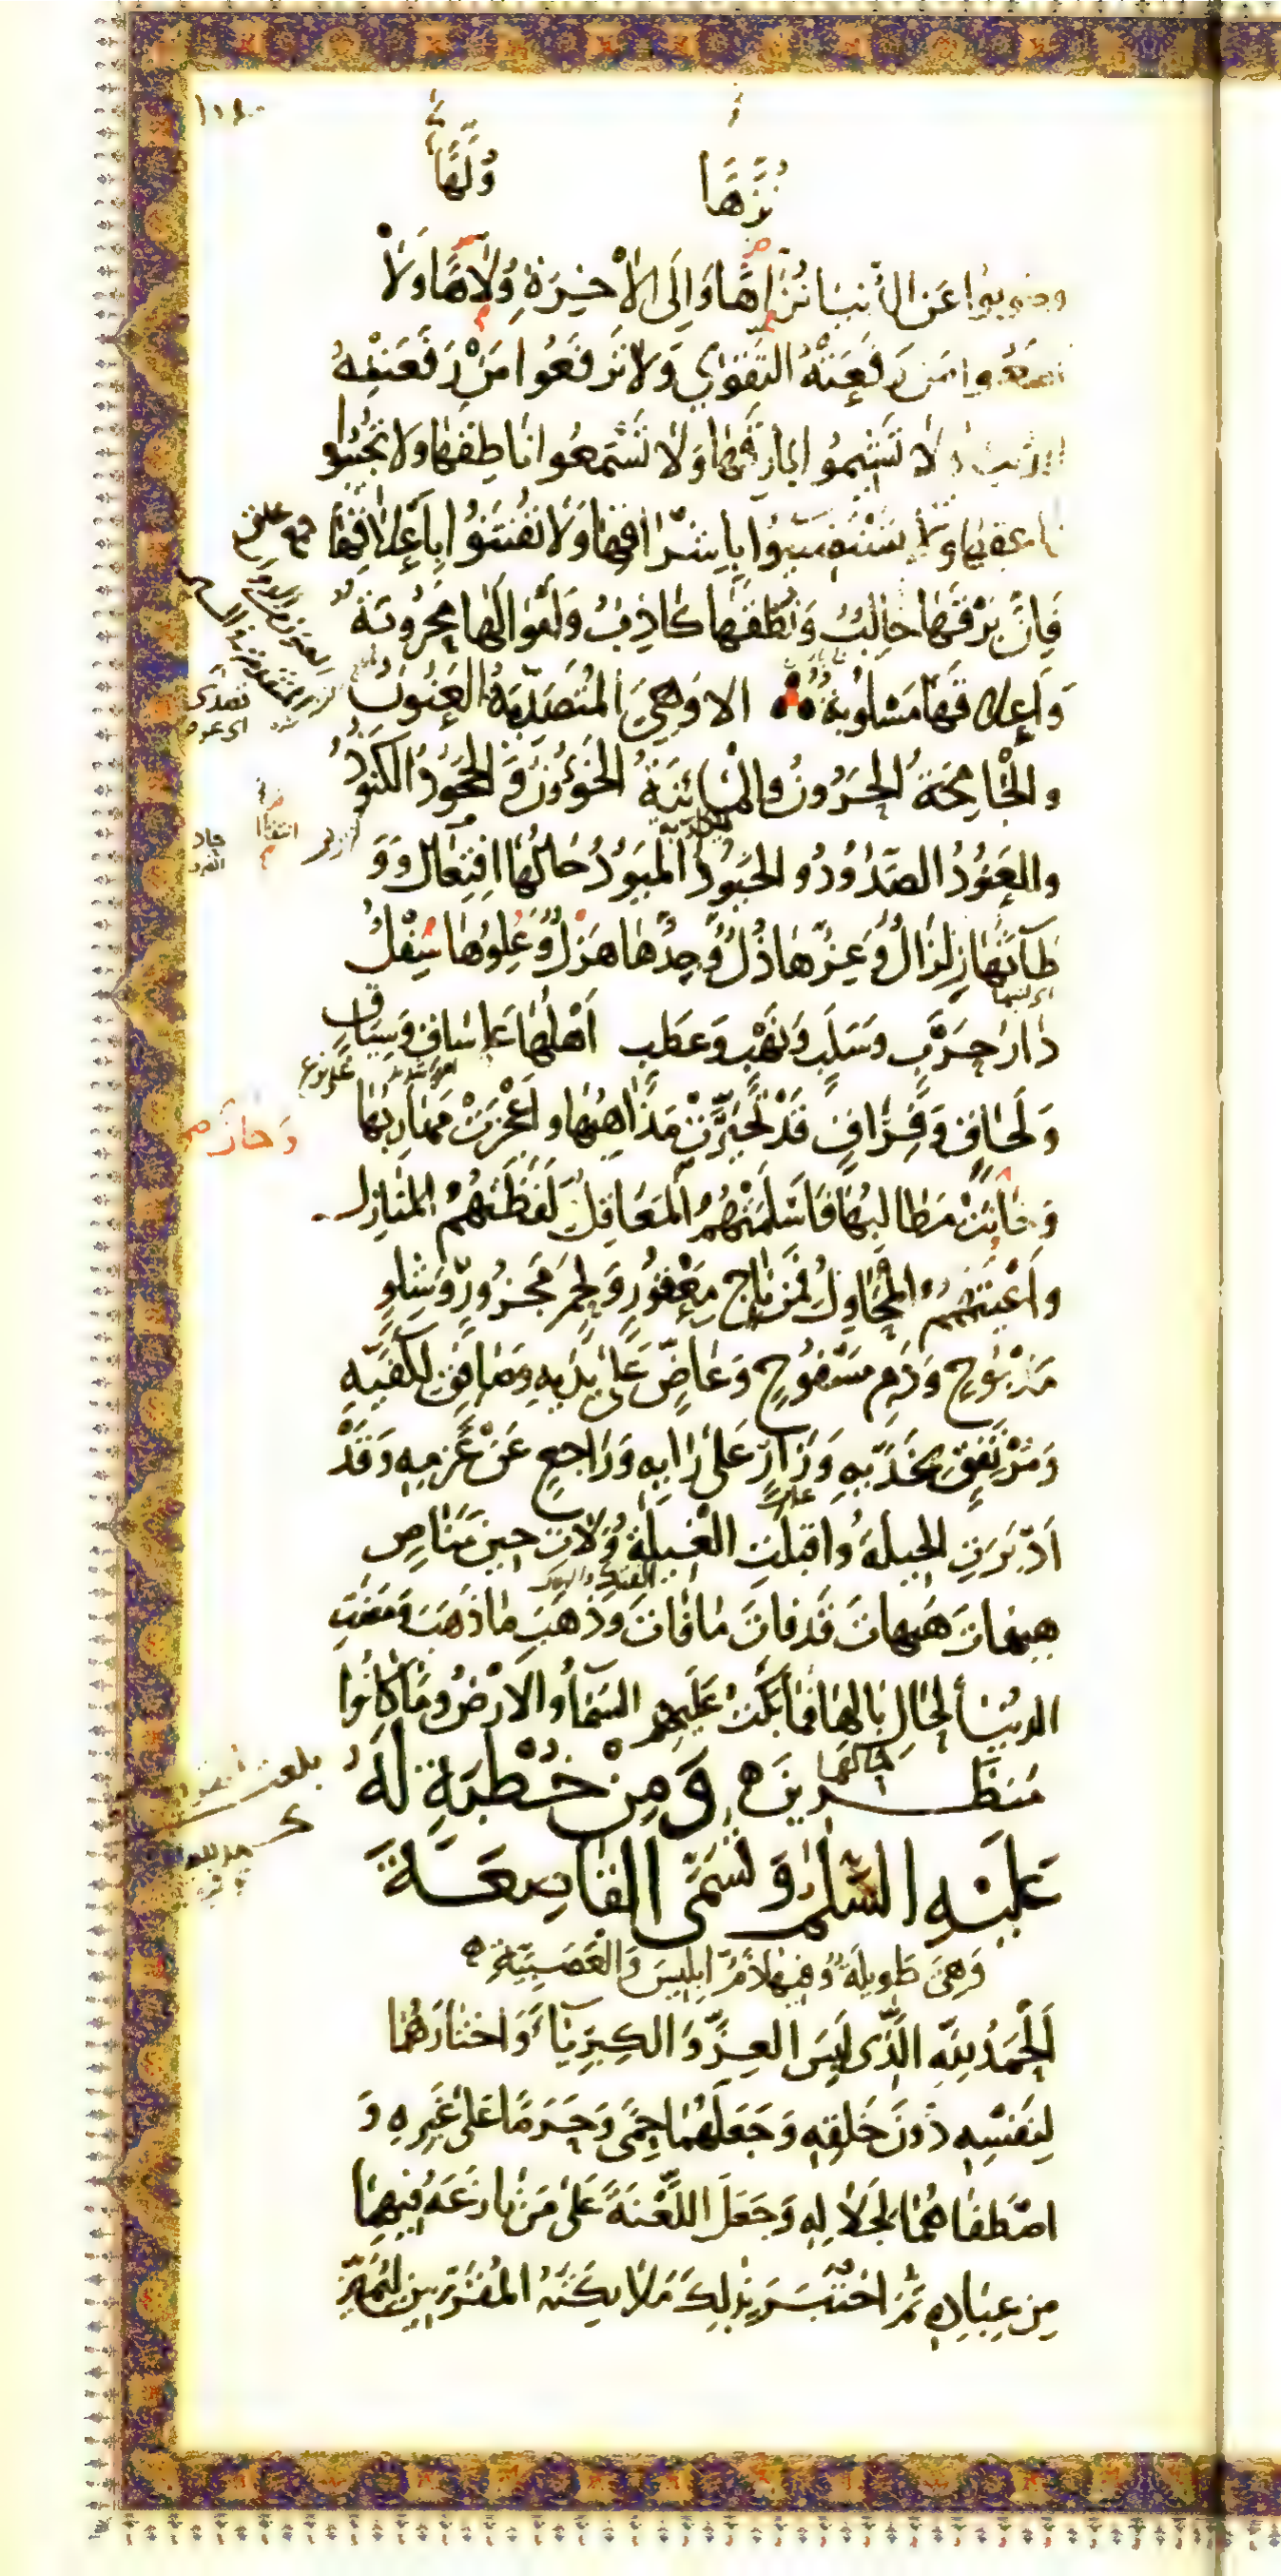 نُزَّهًا
وُلَّهًا
عَنِ الدُّنيَا نُزَّاهًا وَإِلَى الْأَخِرَةِ وُلَّاهًا وَلَا
مَنْ رَفَعَتْهُ التَّقْوٰى وَلَا تَرْفَعُوا مَنْ رَفَعَتْهُ
وَلَا تَشِيمُوا بَارِقَهَا وَلَا تَسْمَعُوا نَاطِقَهَا وَلَا تُجِيبُوا
نَاعِقَهَا وَلَا تَسْتَضِيئُوا بِإِشْرَاقِهَا وَلَا تُفْتَنُوا بِأَعْلَاقِهَا
فَإِنَّ بَرْقَهَا خَالِبٌ وَنُطْقَهَا كَاذِبٌ وَأَمْوَالَهَا مَحْرُوبَةٌ
وَأَعْلَاقَهَا مَسْلُوبَةٌ الا وَهِيَ الْمُتَصَدِّيَةُ الْعَنُونُ
وَالْجَامِحَةُ الْحَرُونُ وَالْمَائِنَةُ الْخَؤُونُ وَالْجَحُودُ الْكَنُودُ
وَالْعَنُودُ الصَّدُودُ وَالْحَيُودُ الْمَيُودُ حَالُهَا انْتِقَالٌ وَوَ
طْأَتُهَا زِلْزَالٌ وَعِزُّهَا ذُلٌّ وَجِدُّهَا هَزْلٌ وَعُلُوُهَا سُفْلٌ
دَارُ حَرْبٍ وَسَلَبٍ وَنَهْبٍ وَعَطَبٍ أَهْلُهَا عَلَى سَاقٍ وَسِيَاقٍ
وَلَحَاقٍ وَفِرَاقٍ قَدْ تَحَيَّرَتْ مَذَاهِبُهَا وَأَعْجَزَتْ مَهَارِبُهَا
وَخَابَتْ مَطَالِبُهَا فَأَسْلَمَتْهُمُ الْمَعَاقِلُ لَفَظَتْهُمُ الْمَنَازِلُ
وَأَعْيَتْهُمُ الْمَحَاوِلُ فَمِنْ نَاجٍ مَعْقُورٍ وَلَحْمٍ مَجْزُورٍ وَشِلْوٍ
مَذْبُوحٍ وَدَمٍ مَسْفُوحٍ وَعَاضٍّ عَلَى يَدَيْهِ وَصَافِقٍ لِكَفَّيْهِ
وَمُرْتَفِقٍ بِخَدَّيْهِ وَزَارٍ عَلَى رَايِهِ وَرَاجِعٍ عَنْ عَزْمِهِ وَقَدْ
أَدْبَرَتِ الْحِيلَةُ وَاقْبَلَتِ الْغِيلَةُ وَلَاتَ حِينَ مَنَاصٍ
هَيهَاتَ هَيهَاتَ قَدْ فَاتَ مَا فَاتَ وَذَهَبَ مَا ذَهَبَ وَمَضَتِ
الدُّنْيَا لِحَالِ بَالِهَا فَمَا بَكَتْ عَلَيْهِمُ السَّمَاءُ وَالْارْضُ وَمَا كَانُوا
مُنْظَرِينَ وَمِنْ خُطْبَةٍ لَهُ
عَلَيْهِ السَّلَمُ وَتُسَمَّى الْقَاصِعَةَ
وَهِيَ طَوِيلَةٌ وَفِيهَا أَمْرُ إِبْلِيسَ وَالْعَصَبِيَّةِ
اَلْحَمْدُ لِلّهِ الَّذِى لَبِسَ الْعِزَّ وَالْكِبْرِيَاءَ وَاخْتَارَهُمَا
لِنَفْسِهِ دُونَ خَلْقِهِ وَجَعَلَهُمَا حِمًى وَحَرَمًا عَلَى غَيْرِهِ وَ
اصْطَفَاهُمَا لِجَلَالِهِ وَجَعَلَ اللَّعْنَةَ عَلَى مَنْ نَازَعَهُ فِيهِمَا
مِنْ عِبَادِهِ ثُمَّ اخْتَبَرَ بِذَلِكَ مَلَائِكَتَهُ الْمُقَرَّبِينَ لِيَمِيزَ